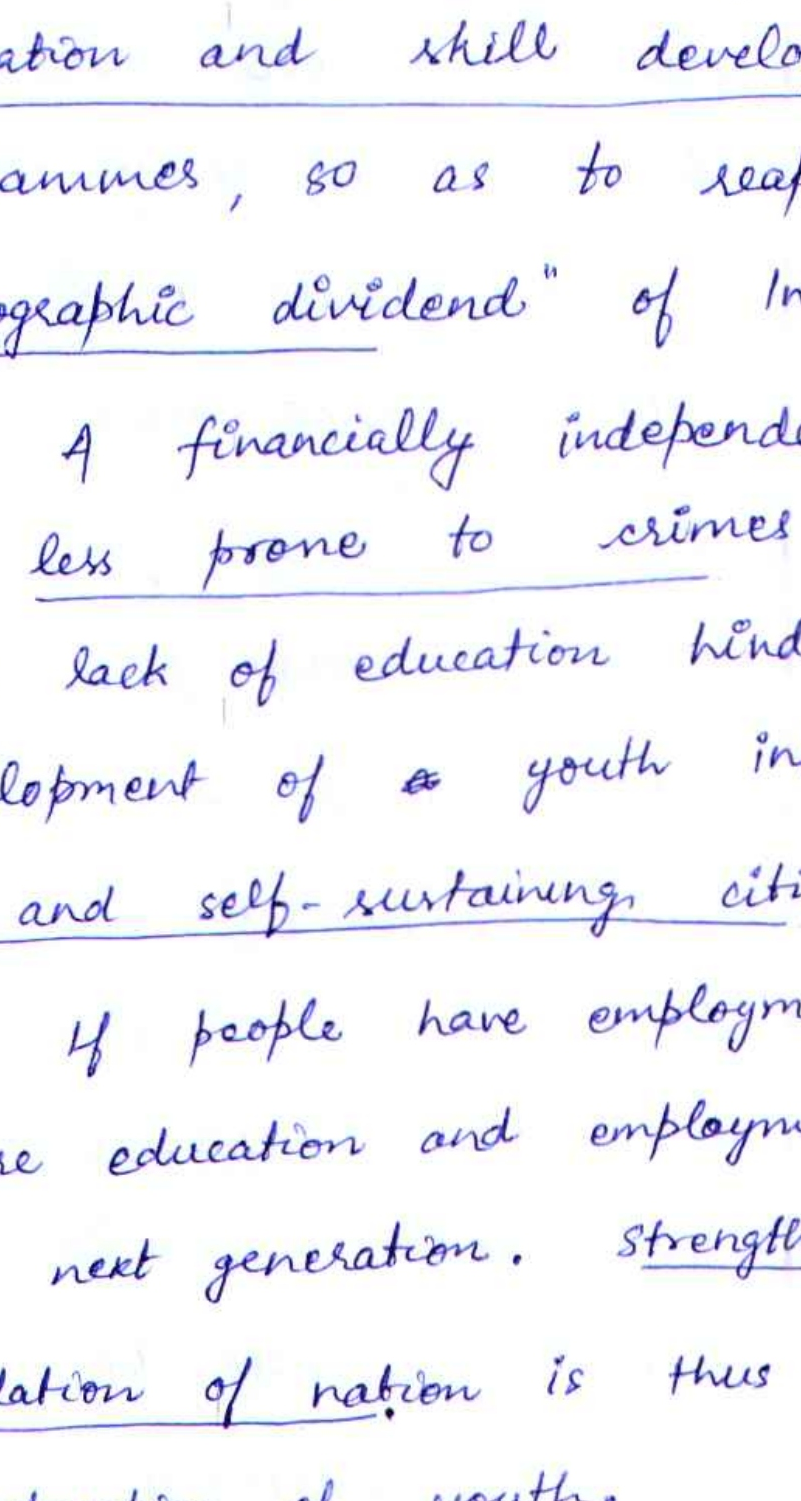 ation and skill develo
ammes, so as to reap
ographic dividend" of In
A financially independe
less prone to crimes
lack of education hind
lopment of youth in
and self-sustaining citi
If people have employm
re education and employm
next generation. Strength
dation of nation is thus
of youth